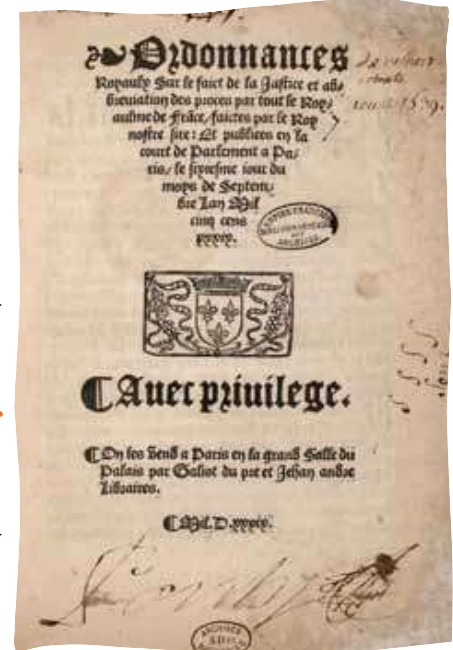 Ordonnances
Royaulx Sur le faict de la Justice et ab/
breuiation des proces par tout le Roy/
aulme de Frāce, faictes par le Roy
nostre sire: Et publiees en la
court de Parlement a Pa/
ris, le sixiesme iour du
moys de Septem/
bre Lan Mil
cinq cens
xxxix.
¶Auec priuilege.
¶On les vend a Paris en la grand Salle du
Palais par Galiot du pre et Jehan andre
Libraires.
¶Mil.D.xxxix.
ARCHIVES